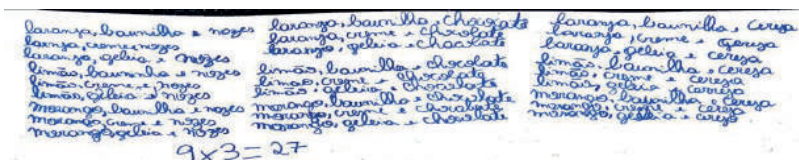 laranja, baunilha e nozes
larnja, creme, nozes
laranja, geleia e nozes
limão, baunilha e nozes
limão, creme e nozes
limão, geleia e nozes
morango, baunilha e nozes
morango, creme e nozes
morango, geleia e nozes
laranja, baunilha e chocolate
laranja, creme e chocolate
laranja, geleia e chocolate
limão, baunilha e chocolate
limão, creme e chocolate
limão, geleia e chocolate
morango, baunilha e chocolate
morango, creme e chocolate
morango, geleia e chocolate
laranja, baunilha e cereja
laranja, creme e cereja
laranja, geleia e cereja
limão, baunilha e cereja
limão, creme e cereja
limão, geleia e cereja
morango, baunilha e cereja
morango, creme e cereja
morango, geleia e cereja
9x3=27